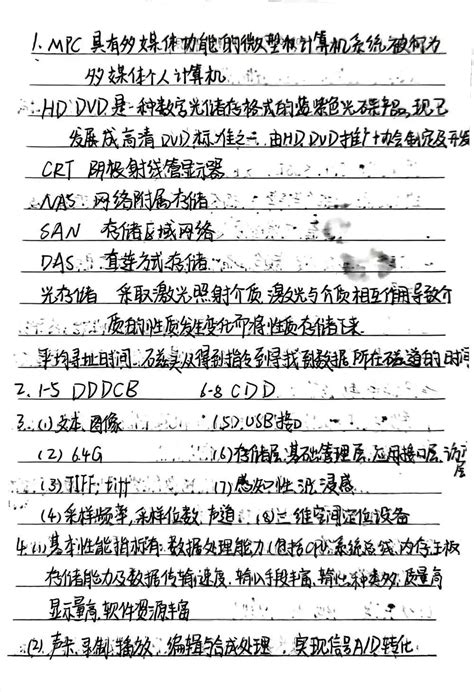 1. MPC 具有多媒体功能的微型机计算机系统被称为
多媒体个人计算机
HD DVD 是一种数字光储存格式的蓝紫色光碟产品,现已
发展成高清DVD标准之一,由HD DVD推广协会制定及开发
CRT 阴极射线管显示器
NAS 网络附属存储
SAN 存储区域网络
DAS 直连方式存储
光存储 采取激光照射介质,激光与介质相互作用导致介
质的性质发生变化而将性质存储下来
平均寻址时间 磁头从得到指令到寻找到数据所在磁道的时间
2. 1-5 DDDCB 6-8 CDD
3. (1) 文本 图像 (5) USB接口
(2) 6.4G (6) 存储层,基础管理层,应用接口层,访问层
(3) TIFF, tiff (7) 感知性,沉浸感
(4) 采样频率,采样位数,声道 (8) 三维空间定位设备
4. (1) 基本性能指标有:数据处理能力(包括CPU,系统总线,内存,主板
存储能力及数据传输速度,输入手段丰富,输出种类多,质量高
显示量高,软件资源丰富
(2) 声卡:录制,播放,编辑与合成处理,实现信号A/D转化